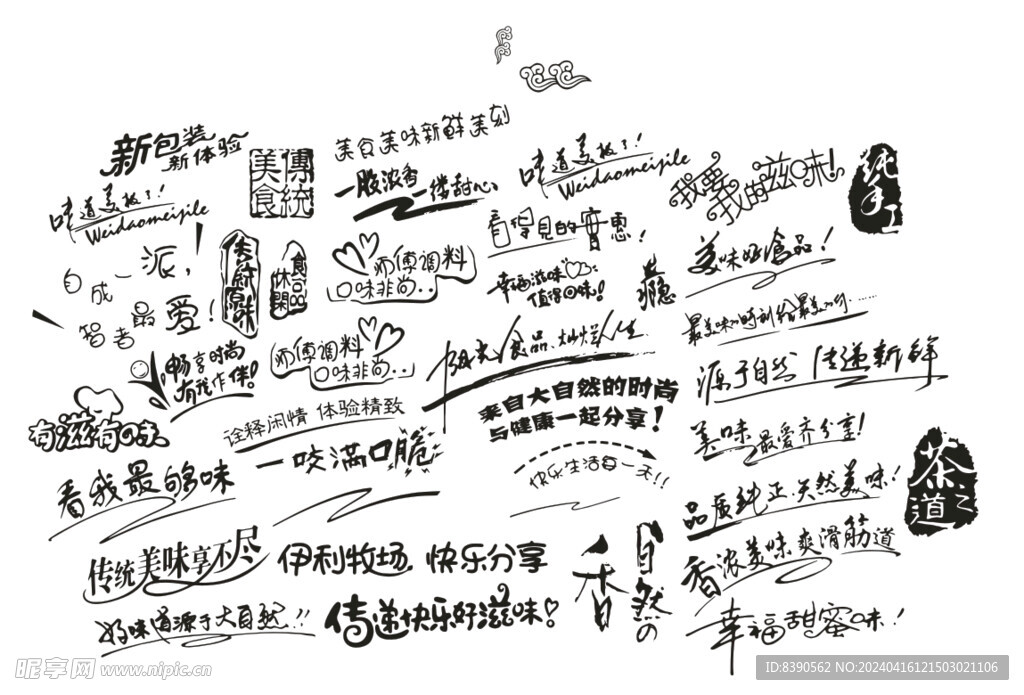 新包装
新体验
美食
傳統
美食美味新鲜美刻
一股浓香
一偻甜心
味道美极了!
Weidaomeijile
我要
我的滋味!
纯手工
味道美极了!
Weidaomeijile
看得見的實惠!
美味好食品!
自成一派,
智者最爱!
传府原味
休閑
食品
师傅调料
口味非尚..
幸福滋味
值得回味!
最美味的時刻给最美的你......
师傅调料
口味非尚..
阳光食品.灿烂人生
源于自然 传递新鲜
畅享时尚
有我作伴!
有滋有味
诠释闲情 体验精致
来自大自然的时尚
与健康一起分享!
美味最爱齐分享!
看我最够味
一咬满口脆
快乐生活每一天!!
品质纯正.天然美味!
茶之道
传统美味享不尽
伊利牧场.快乐分享
自然の香
香浓美味爽滑筋道
好味道源于大自然!!
传递快乐好滋味!
幸福甜蜜味!
昵享网 www.nipic.cn
ID:8390562 NO:20240416121503021106